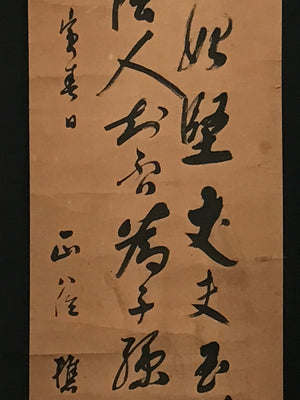 始堅丈夫玉
法人知否為子孫
寅春日